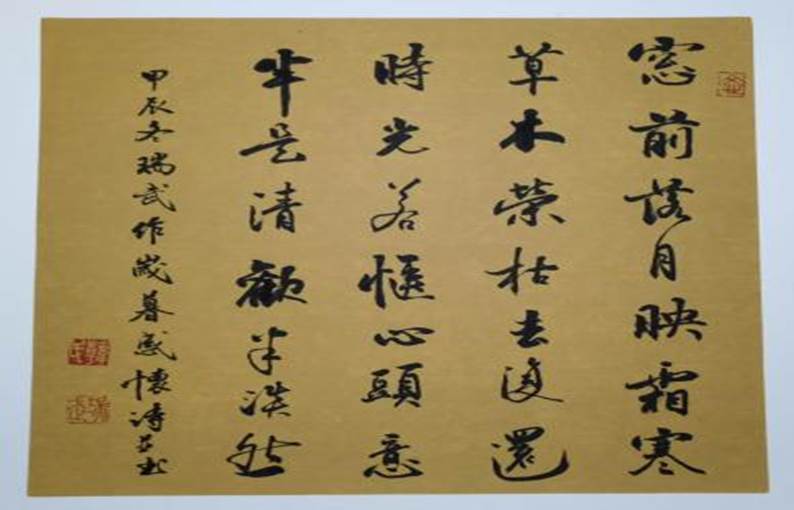 窓前落月映霜寒
草木榮枯去復還
時光若愜心頭意
半是清歡半淡然
甲辰冬瑞武作歲暮感懷詩並書